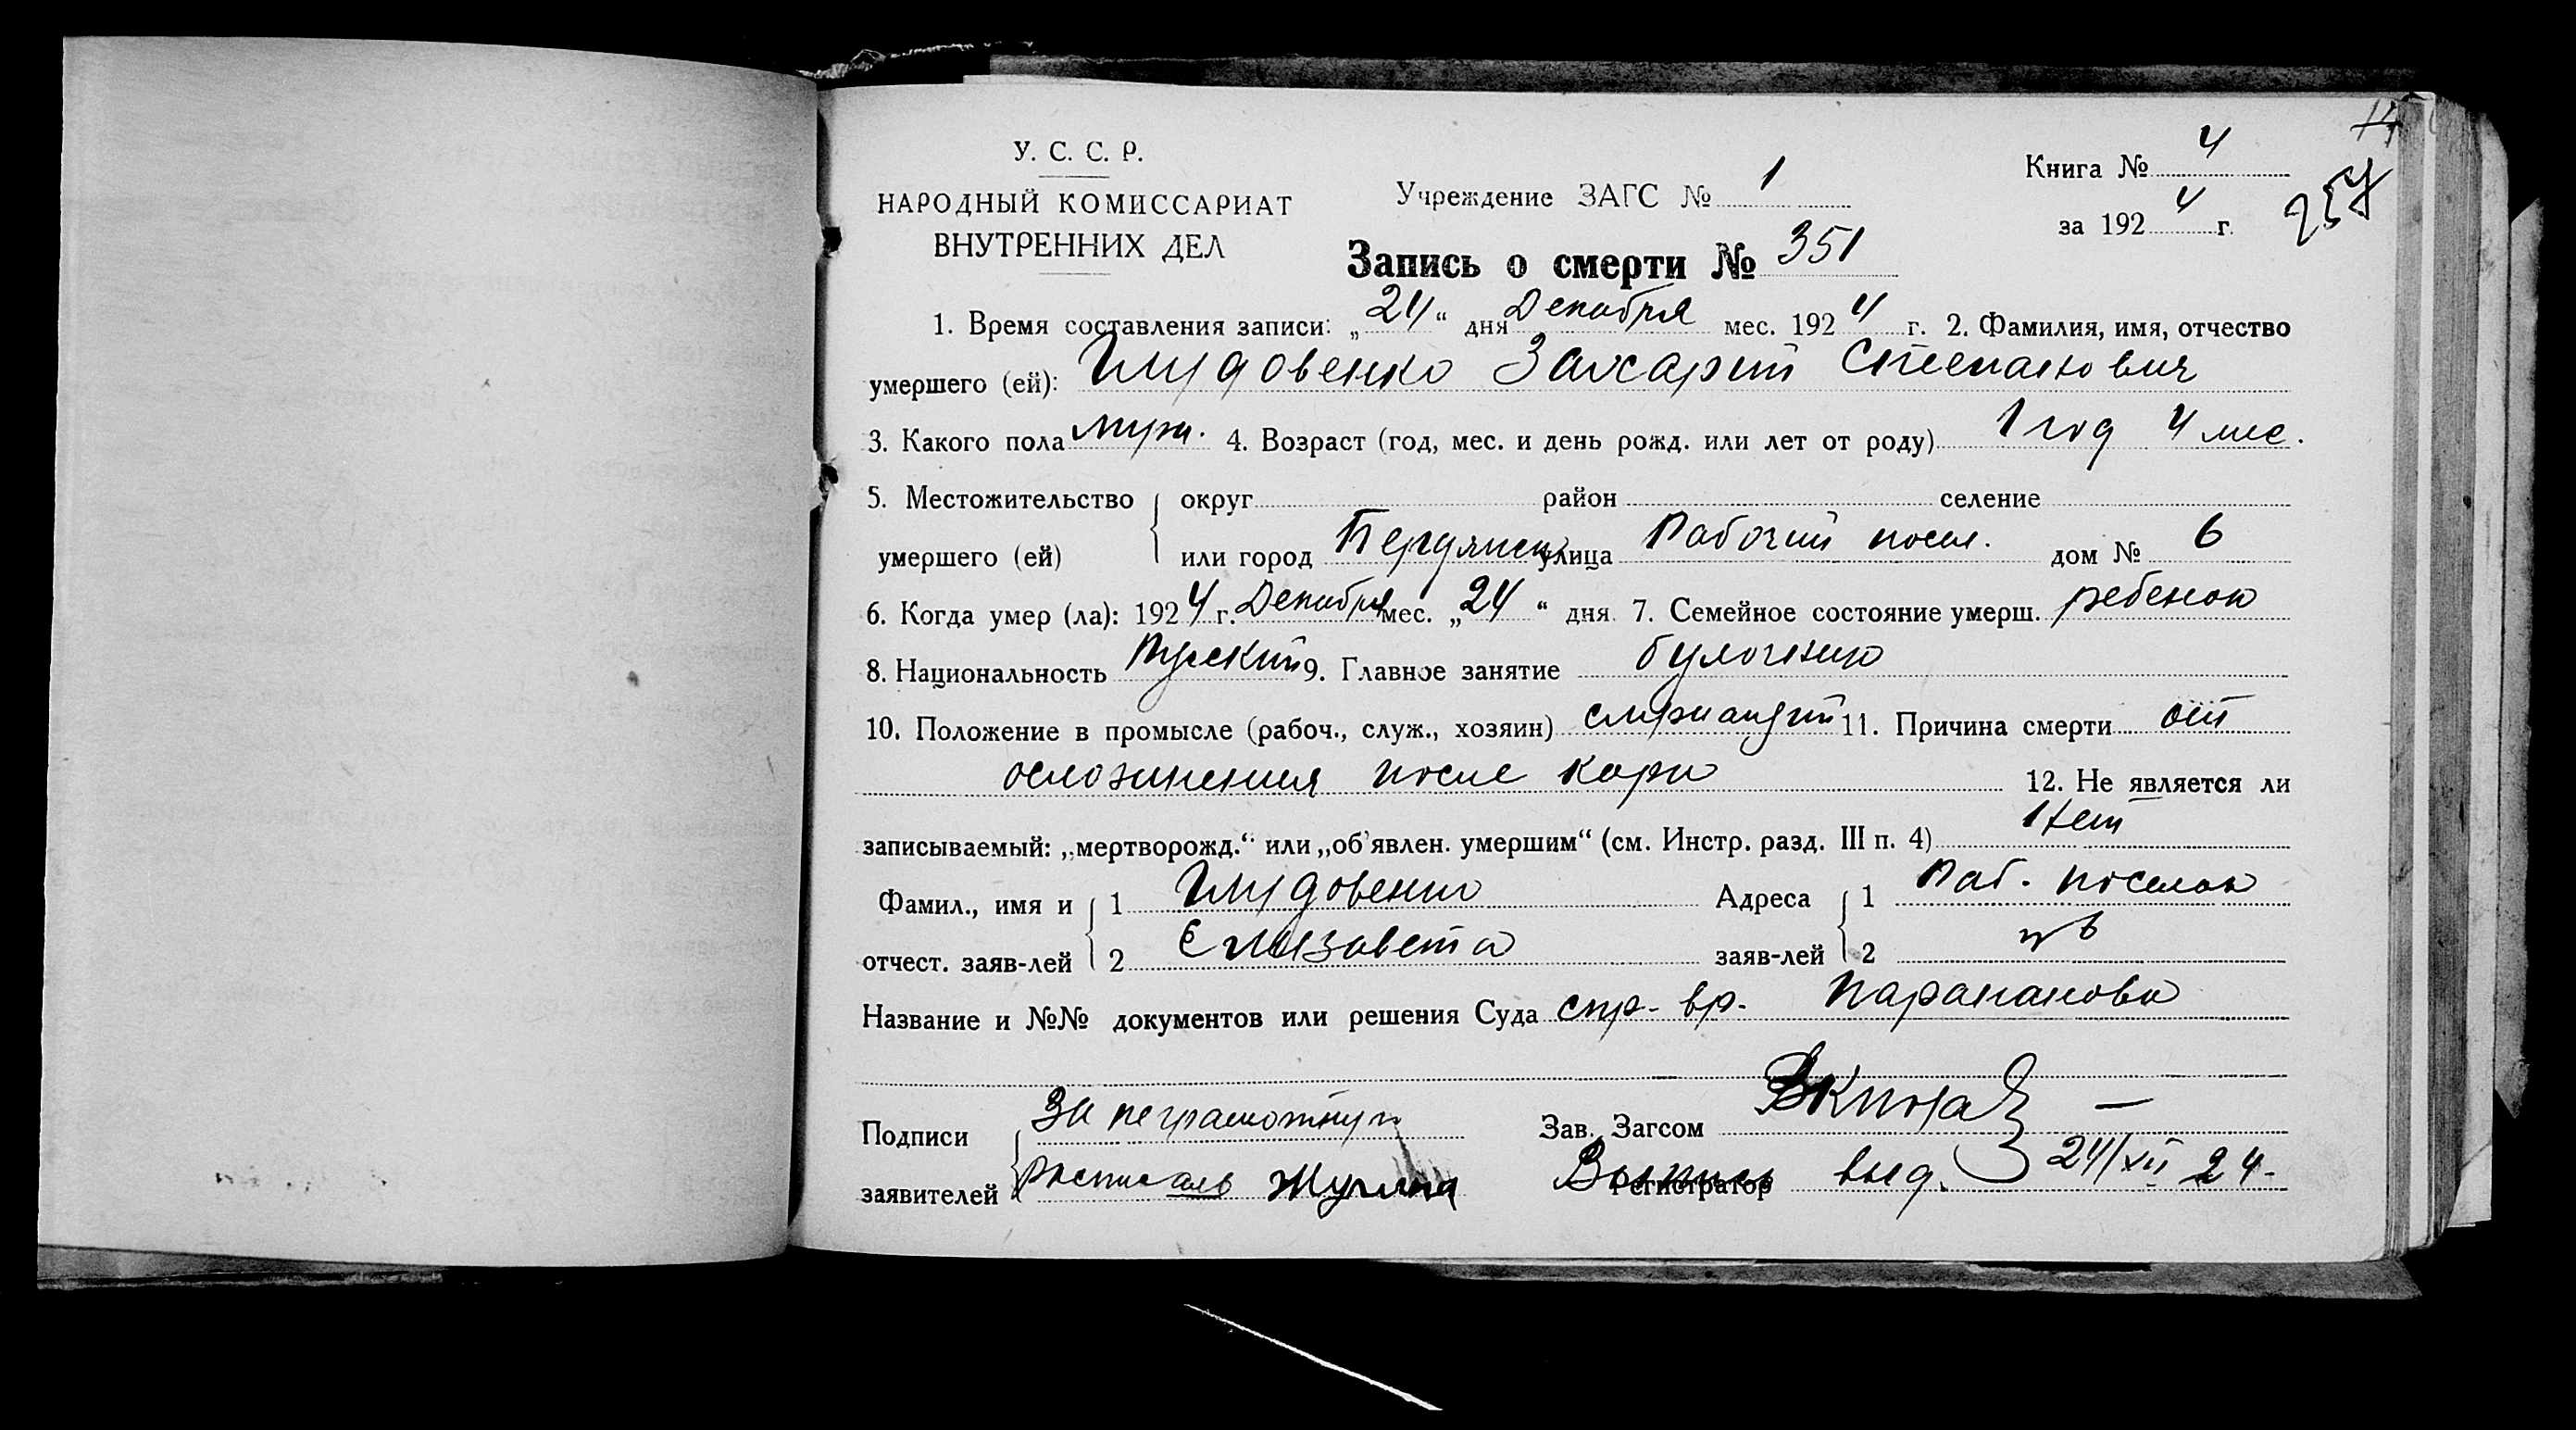 У. С. С. Р.
НАРОДНЫЙ КОМИССАРИАТ
ВНУТРЕННИХ ДЕЛ
Учреждение ЗАГС № 1
Книга № 4
за 1924 г.
257
Запись о смерти № 351
1. Время составления записи: „24“ дня Декабря мес. 1924 г. 2. Фамилия, имя, отчество
умершего (ей): Шудовенко Захарий Степанович
3. Какого пола муж. 4. Возраст (год, мес. и день рожд. или лет от роду) 1 год 4 мес.
5. Местожительство округ район селение
умершего (ей) или город Бердянск улица Рабочий посел. дом № 6
6. Когда умер (ла): 1924 г. Декабря мес. „24“ дня. 7. Семейное состояние умерш. ребенок
8. Национальность Русский 9. Главное занятие булочник
10. Положение в промысле (рабоч., служ., хозяин) служащий 11. Причина смерти от
осложнения после кори 12. Не является ли
записываемый: „мертворожд.“ или „об'явлен. умершим“ (см. Инстр. разд. III п. 4) Нет
Фамил., имя и 1 Шудовенко Адреса 1 Раб. поселок
отчест. заяв-лей 2 Елизавета заяв-лей 2 №6
Название и №№ документов или решения Суда спр. вр. Параканова
Подписи За неграмотную Зав. Загсом
заявителей росписаль Регистратор Выпись выд. 24/XII 24